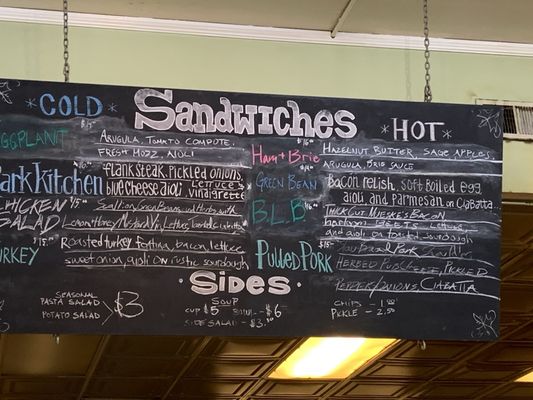 Sandwiches
* COLD *
EGGPLANT $15
ARUGULA, TOMATO COMPOTE,
FRESH MOZZ, AIOLI
Park Kitchen
flank steak, Pickled onions
blue cheese aioli, Lettuce &
vinaigrette
CHICKEN $15
SALAD
Lemon Honey Mustard
TURKEY $15
Roasted turkey, fontina, bacon, lettuce
sweet onion, aioli on rustic sourdough
* HOT *
Ham + Brie $16
HAZELNUT BUTTER, SAGE APPLES,
ARUGULA, BRIE SAUCE
GREEN BEAN
Bacon relish, soft Boiled egg
aioli, and Parmesan on Ciabatta
B.L.B $16
Thick Cut Bacon
BEETS, Lettuce
and aioli on sourdough
Pulled Pork $15
Pork
HERBED PICKLED
PEPPER/ONIONS CIABATTA
· Sides ·
SEASONAL
PASTA SALAD
POTATO SALAD
$3
SOUP
CUP $5 BOWL -- $6
SIDE SALAD - $3.50
CHIPS - 1.00
PICKLE - 2.50